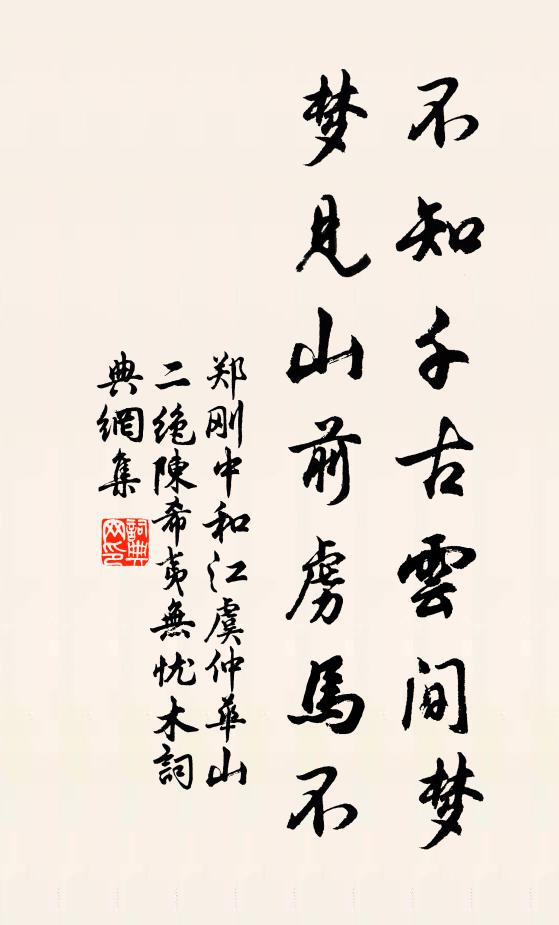 不知千古雲间梦
梦見山前虜馬不
郑刚中和江虞仲華山
二绝陳希夷無忧木詞
典網集
詞典網印